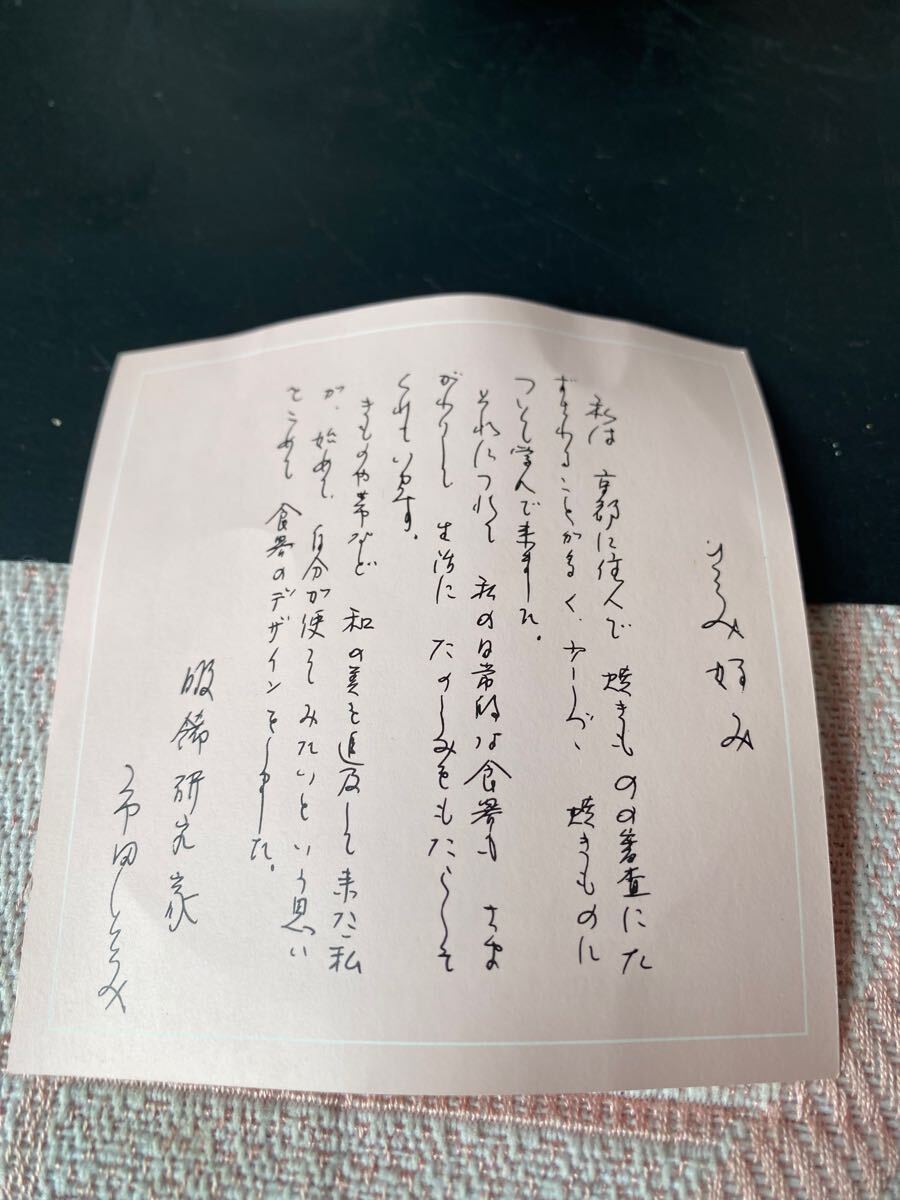 ひとみ好み
私は 京都に住んで 焼きものの審査にた
ずさわることが多く、少しづゝ 焼きものに
ついても学んで来ました。
それにつれて 私の日常的な食器も さま
がわりして 生活に たのしみをもたらして
くれています。
きものや帯など 和の美を追及して来た私
が、始めて、自分が使ってみたいという思い
をこめて 食器のデザインをしました。
服飾研究家
市田ひとみ